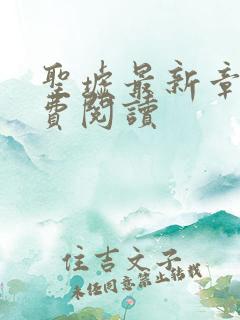 聖墟最新章
費閱讀
住吉文子
未经同意禁止转载